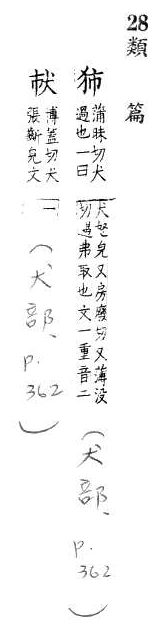 28 類 篇
犻
蒲昧切犬
過也一曰
犬怒皃又房廢切又薄没
切過弗取也文一重音二
(犬部、p.362)
博蓋切犬
張齗皃文
一
(犬部、p.362)